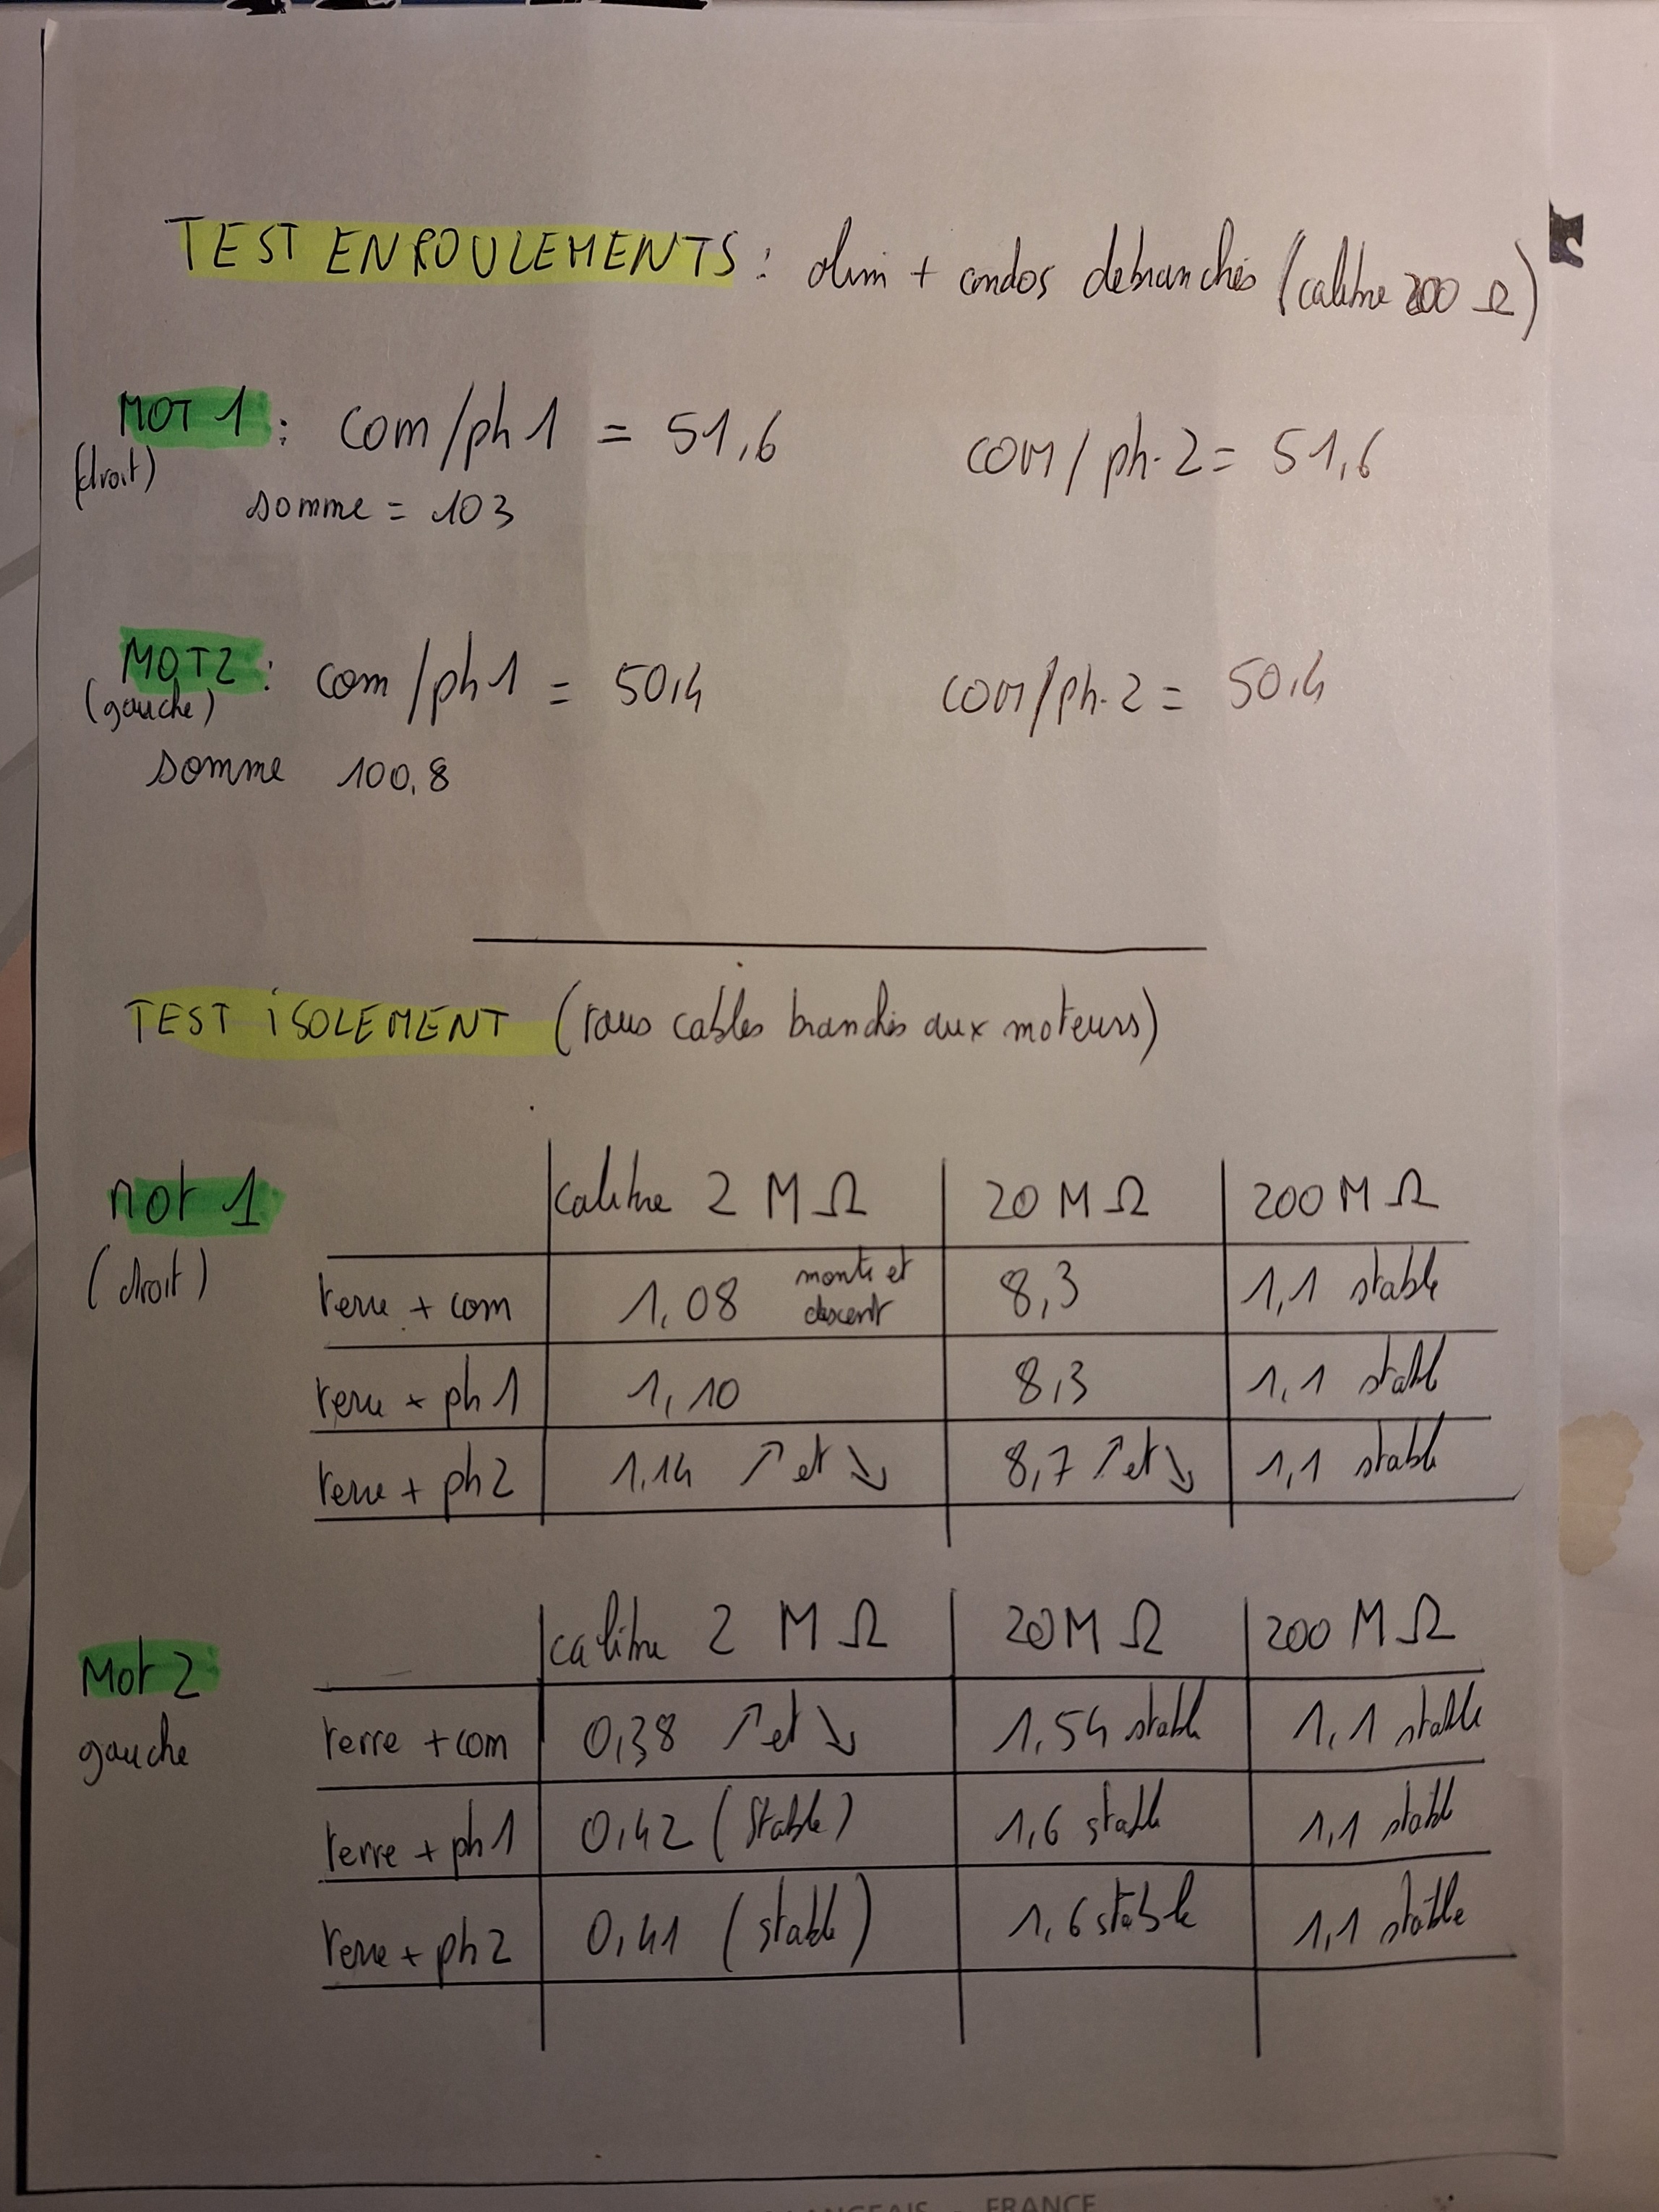 TEST ENROULEMENTS : alim + condos debranchés (calibre 200 Ω)
MOT 1 : com/ph1 = 51,6 com/ph.2 = 51,6
(droit)
somme = 103
MOT2 : com/ph1 = 50,4 com/ph.2 = 50,4
(gauche)
somme 100,8
TEST iSOLEMENT (tous cables branchés aux moteurs)
mot 1 calibre 2 MΩ 20 MΩ 200 MΩ
(droit) terre + com 1,08 monte et descent 8,3 1,1 stable
terre + ph1 1,10 8,3 1,1 stable
terre + ph2 1,14 ↗ et ↘ 8,7 ↗ et ↘ 1,1 stable
Mot 2 calibre 2 MΩ 20MΩ 200 MΩ
gauche terre + com 0,38 ↗ et ↘ 1,54 stable 1,1 stable
terre + ph1 0,42 (stable) 1,6 stable 1,1 stable
terre + ph2 0,41 (stable) 1,6 stable 1,1 stable
LANGEAIS - FRANCE